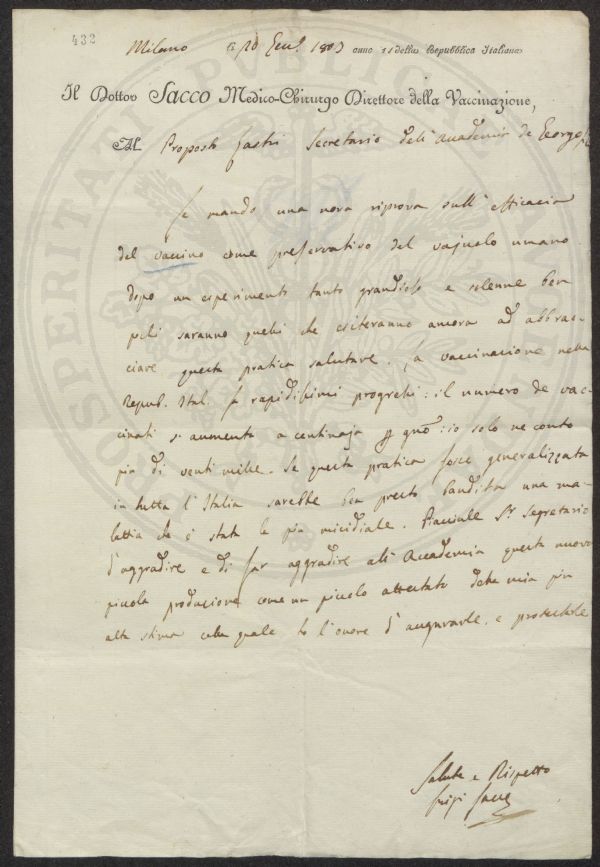 432
Milano a 20 Gen.º 1803 anno 11 della Repubblica Italiana
Il Dottor Sacco Medico-Chirurgo Direttore della Vaccinazione,
Al Proposto Lastri Secretario dell'Academia de Georgofili
Le mando una nova riprova sull'efficacia
del vaccino come preservativo del vajuolo umano
dopo un esperimento tanto grandioso e solenne ben
pochi saranno quelli che esiteranno ancora ad abbrac-
ciare questa pratica salutare. La vaccinazione nella
Repub. Ital. fa rapidissimi progressi: il numero de vac-
cinati si aumenta a centinaja p giorno: io solo ne conto
più di venti mille. Se questa pratica fosse generalizzata
in tutta l'Italia sarebbe ben presto bandita una ma-
lattia che è stata la più micidiale. Piacciale Sr. Segretario
d'aggradire e di far aggradire all'Accademia questa nuova
piccola produzione come un piccolo attestato della mia più
alta stima colla quale ho l'onore d'augurarle, e protestarle
Salute e Rispetto
Luigi Sacco
PROSPERITATI PUBLICAE AUGENDAE